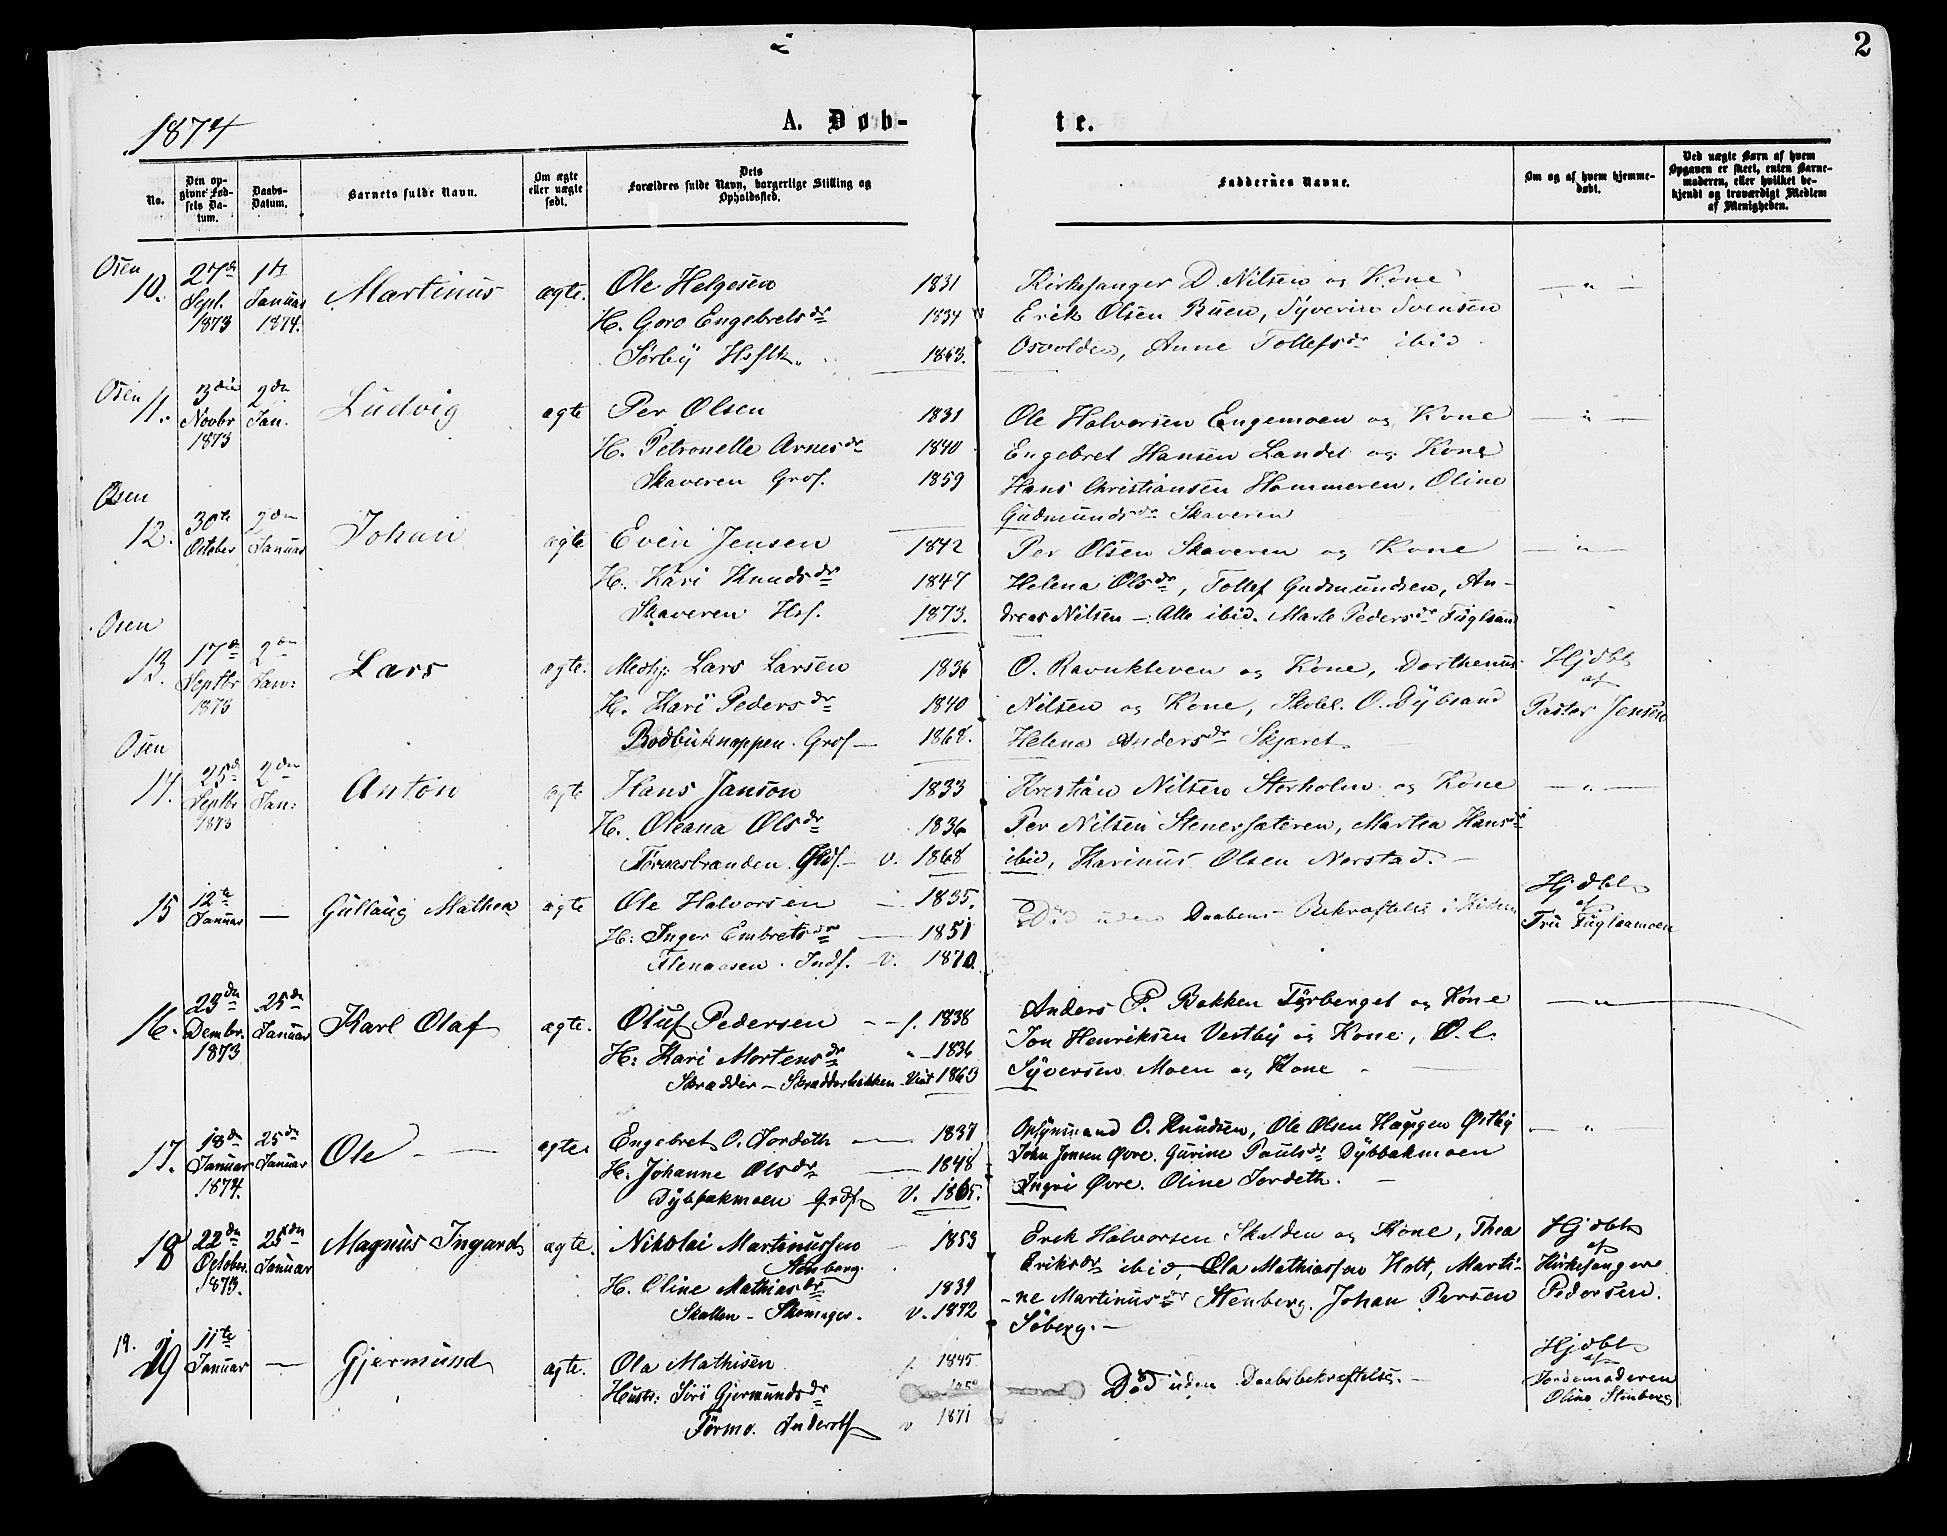 2
1874
A. Døb-
te.
No.
Den op-
givne Fød-
sels Da-
tum.
Daabs-
Datum.
Barnets fulde Navn.
Om ægte
eller uægte
født.
Dets
Forældres fulde Navn, borgerlige Stilling og
Opholdssted.
Faddernes Navne.
Om og af hvem hjemme-
døbt.
Ved uægte Børn af hvem
Opgaven er skeet, enten Barne-
moderen, eller hvilket be-
kjendt og troværdigt Medlem
af Menigheden.
Osen
10. 27de Sept. 1873
1ste Januar 1874.
Martinus
ægte.
Ole Helgesen 1831
H. Goro Engebretsdr 1834
Sørby Hsflk. 1863.
Kirkesanger D. Nilsen og Kone
Erik Olsen Ruen, Syverin Svensen
Osvolden, Anne Tollefsdr ibid
— " —
Osen
11. 3die Novbr 1873
2den Jan.
Ludvig
ægte
Per Olsen 1831
H. Petronelle Arnesdr 1840
Skaveren Grdf. 1859
Ole Halvorsen Engemoen og Kone
Engebret Hansen Landet og Kone
Hans Christiansen Hammeren, Oline
Gudmundsdr Skaveren
— " —
Osen
12. 30te October
2den Januar
Johan
ægte
Even Jensen 1842
H. Kari Knudsdr 1847
Skaveren Hsf. 1873.
Per Olsen Skaveren og Kone
Helena Olsdr, Tollef Gudmundsen, An-
dreas Nilsen — Alle ibid. Marte Pedersdr Fuglsand
— " —
Osen
13. 17de Septbr 1873
2den Jan:
Lars
ægte.
Lars Larsen 1836
H. Kari Pedersdr 1840
Grdf — 1868.
O. Ravnkleven og Kone, Dorthenus
Nilsen og Kone, Skolel. O. Dybsand
Helena Andersdr Skjæret
Hjdbt
af
Pastor Jensen
Osen
14. 25de Septbr 1873
2den Jan:
Anton
ægte
Hans Janson 1833
H. Oleana Olsdr 1836
Grdf. — v. 1868
Kristian Nilsen Storholm og Kone
Per Nilsen Stenersæteren, Martea Hansdr
ibid, Karinus Olsen Nerstad. —
— " —
15 12te Januar
—
Gullaug Mathea
ægte
Ole Halvorsen — 1835.
H: Inger Embretsdr — 1851
Indf. — V. 1870.
Død uden Daabens Bekræftelse i Kirken
Hjdbt
af
Fru Fuglsamoen
16. 23de Dembr. 1873
25de Januar
Karl Olaf
ægte.
Oluf Pedersen — f. 1838
H: Kari Mortensdr " — 1836
Skrædder — Skrædderbakken Viet 1863
Anders P. Bakken Tyrberget og Kone
Jon Henriksen Vestby og Kone, O. L.
Syversen Moen og Kone
— " —
17. 18de Januar 1874.
25de Januar
Ole —
ægte.
Engebret O. Jordeth — 1837
H. Johanne Olsdr — 1848
Dybbakmoen Grdf V. 1865.
Opsynsmand O. Knudsen, Ole Olsen Haggen Østby
John Jonsen Øvre. Gurine Paulsdr Dybbakmoen
Ingri Øvre. Oline Jordeth. —
— " —
18 22de October 1873.
25de Januar
Magnus Ingvard
ægte.
Nikolai Martinussen — 1853
Stenberg.
H. Oline Mathiasdr 1839
Skallen — Skomager. V. 1872
Erik Halvorsen Skalden og Kone, Thea
Eriksdr ibid, Ola Mathiassen Holt, Marti-
-ne Martinusdr Stenberg. Johan Persen
Søberg. —
Hjdbt
af
Kirkesanger
Pedersen.
19.
19 11te Januar
—
Gjermund
ægte.
Ola Mathisen f. 1845
Hustr: Siri Gjermundsdr 1850
Tørmo. Inderst v 1871
Død uden Daabsbekræftelse. —
Hjdbt
af
Jordemoderen
Oline Stenberg